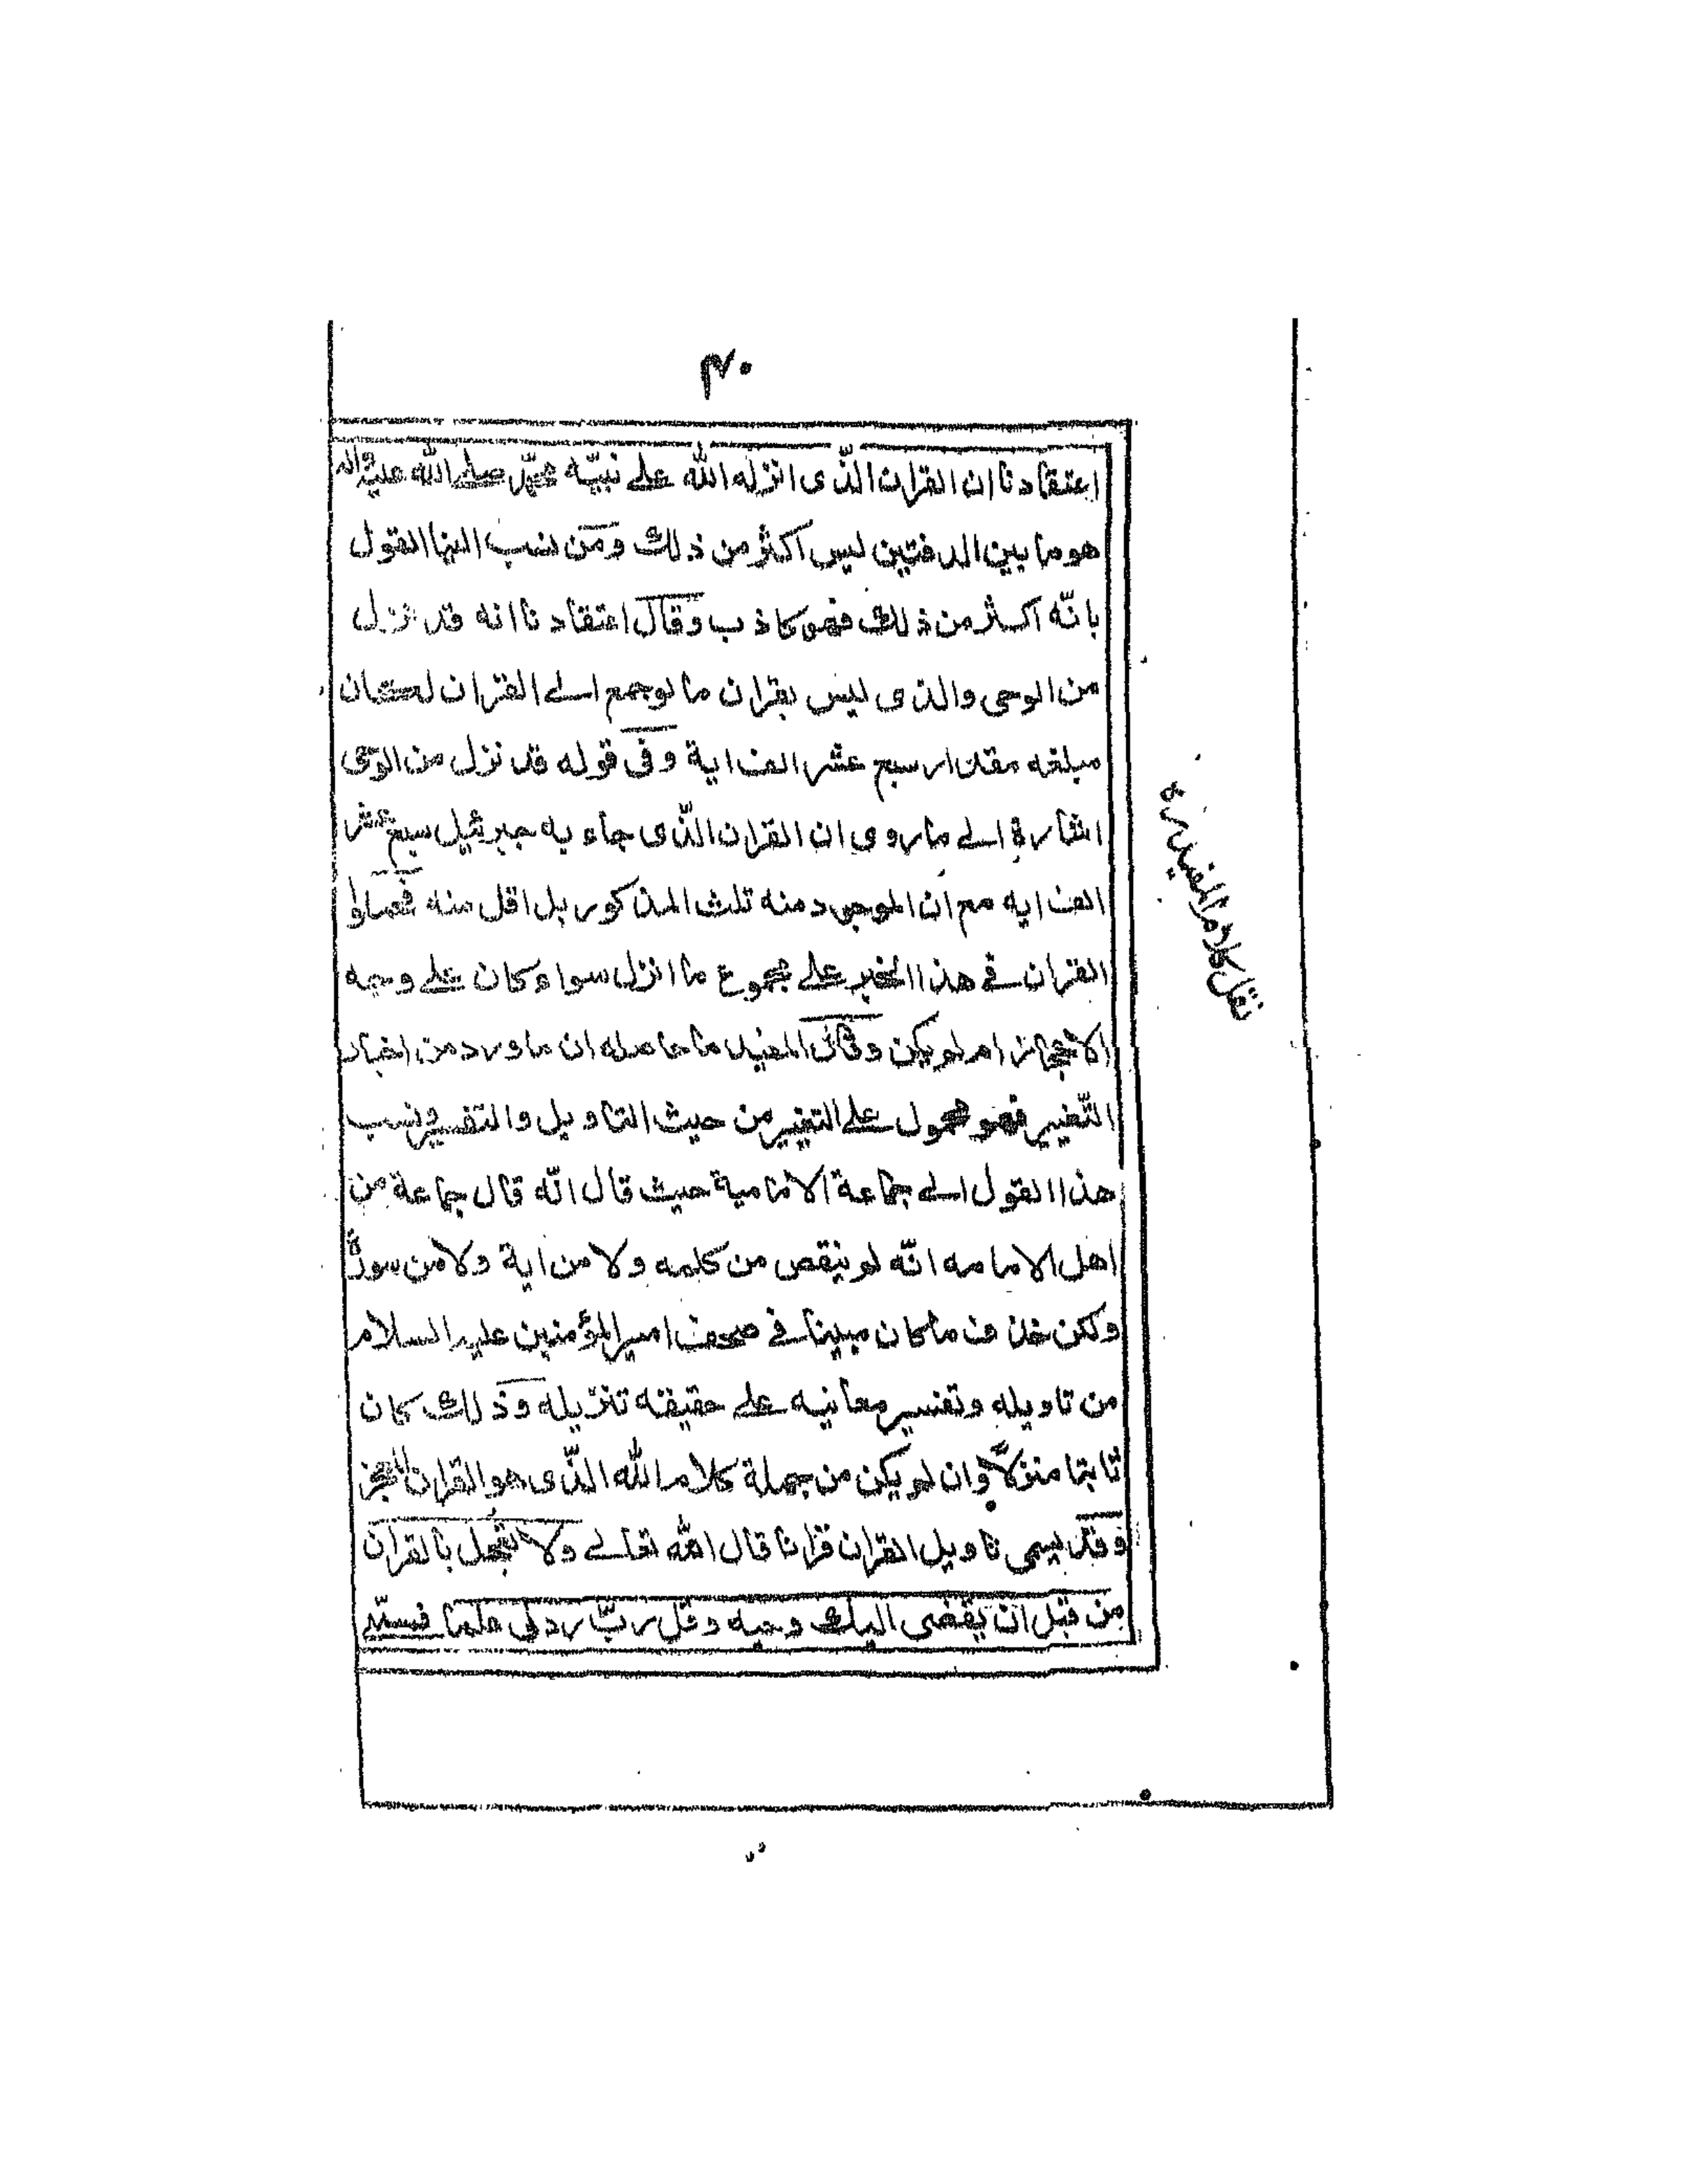 ۴۰
اعتقادنا ان القران الذّى انزله الله على نبيّه محمّد صلى الله عليه واله
هو ما بين الدفتين ليس اكثر من ذلك ومن نسب الينا القول
بانّه اكثر من ذلك فهو كاذب وقال اعتقادنا انه قد نزل
من الوحى والذى ليس بقران ما لو جمع الى القران لكان
مبلغه مقدار سبع عشر الف اية وفى قوله قد نزل من الوحى
اشارة الى ما روى ان القران الذّى جاء به جبرئيل سبع عشر
الف ايه مع ان الموجود منه ثلث المذكور بل اقل منه فحملوا
القران فى هذا الخبر على مجموع ما انزل سواء كان على وجه
الاعجاز ام لم يكن وقال المفيد ما حاصله ان ما ورد من اخبار
التّغيير فهو محمول على التغيير من حيث التاويل والتفسير ونسب
هذا القول الى جماعة الامامية حيث قال انّه قال جماعة من
اهل الامامه انّه لم ينقص من كلمه ولا من اية ولا من سورة
ولكن حذف ما كان مبينا فى مصحف امير المؤمنين عليه السلام
من تاويله وتفسير معانيه على حقيقة تنزيله وذلك كان
ثابتا منزلاً وان لم يكن من جملة كلام الله الذّى هو القران المعجز
وقد يسمى تاويل القران قرانا قال الله تعالى ولا تعجل بالقران
من قبل ان يقضى اليك وحيه وقل ربّ زدنى علما فسمّى
نقل كلام المفيد ره